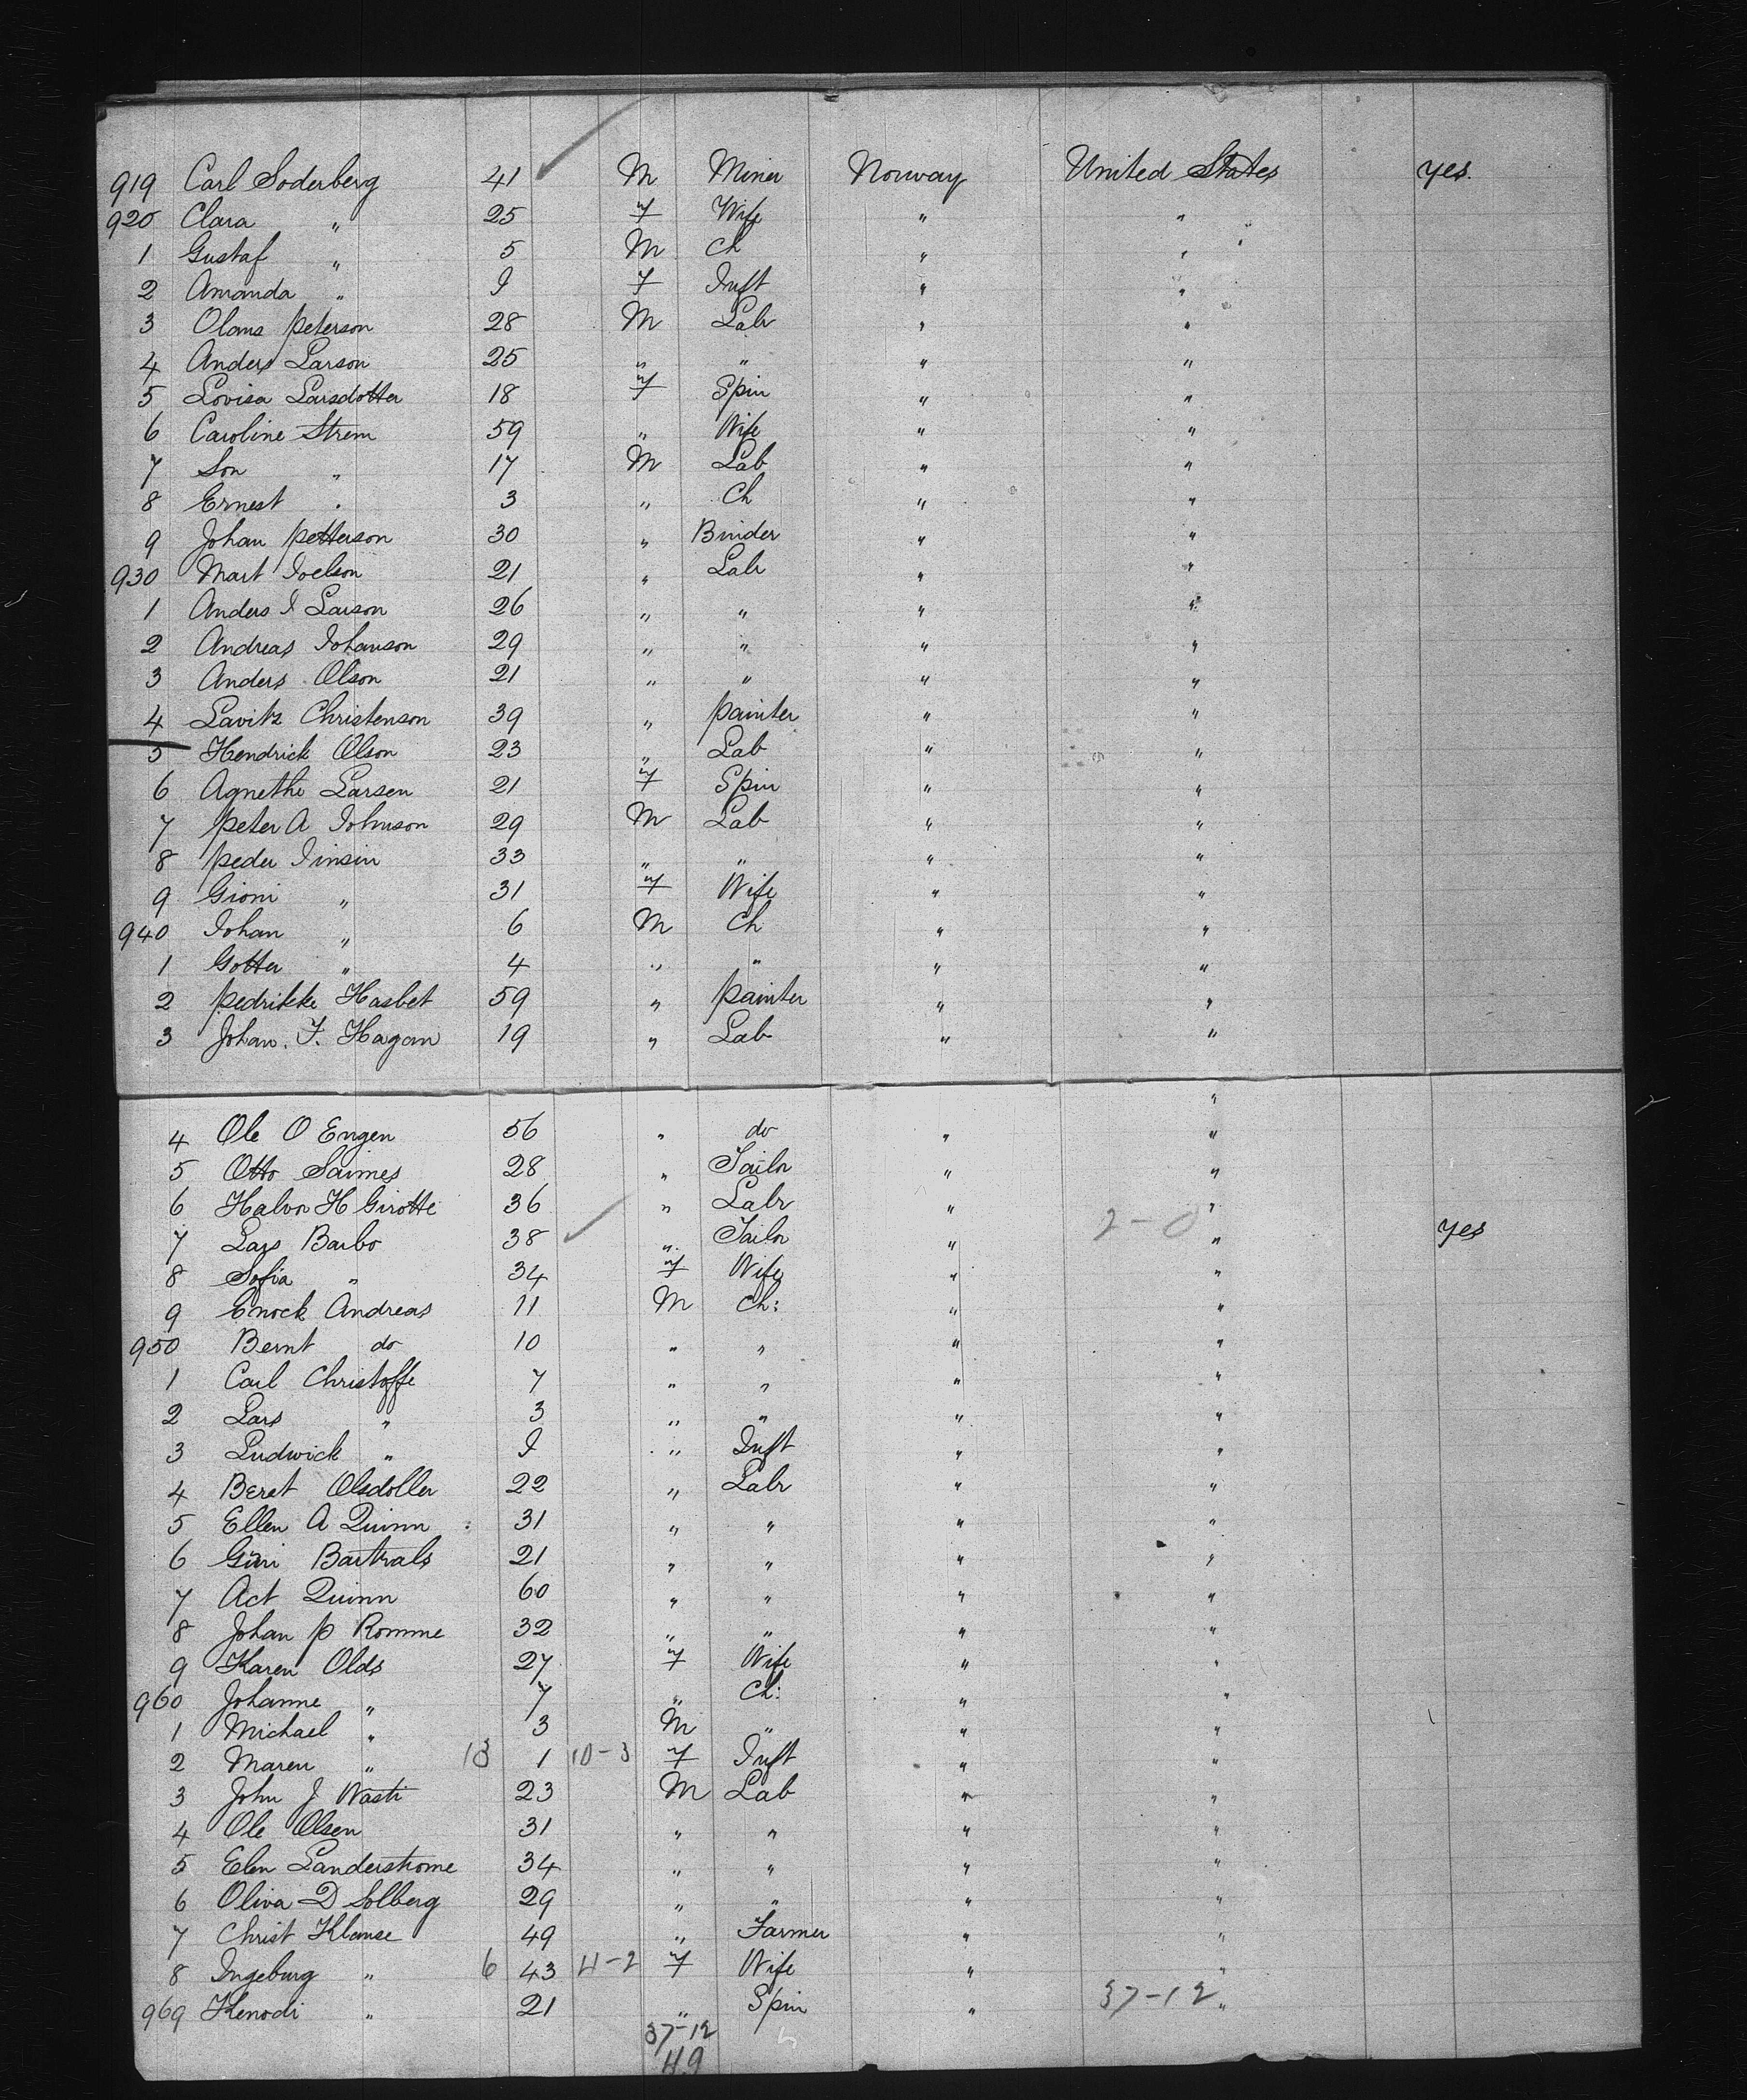 919 Carl Soderberg 41 M Miner Norway United States yes.
920 Clara " 25 f Wife " "
1 Gustaf " 5 M Ch " "
2 Amanda " I f Inft " "
3 Olans Peterson 28 M Labr " "
4 Anders Larson 25 " " " "
5 Lovisa Larsdotter 18 f Spin " "
6 Caroline Strem 59 " Wife " "
7 Son " 17 M Lab " "
8 Ernest " 3 " Ch " "
9 Johan Petterson 30 " Binder " "
930 Mart Joelson 21 " Labr " "
1 Anders I Larson 26 " " " "
2 Andreas Johanson 29 " " " "
3 Anders Olson 21 " " " "
4 Lavitz Christenson 39 " painter " "
5 Hendrick Olson 23 " Lab " "
6 Agnethe Larsen 21 f Spin " "
7 Peter A Johnson 29 M Lab " "
8 Peder Jinsin 33 " " " "
9 Gioni " 31 f Wife " "
940 Johan " 6 M Ch " "
1 Gotter " 4 " " " "
2 Pedrikke Hasbet 59 " painter " "
3 Johan. F. Hagan 19 " Lab " "
"
4 Ole O Engen 56 " do " "
5 Otto Saimes 28 " Tailor " "
6 Halvor H Girotte 36 " Labr " "
7 Lars Barbo 38 " Tailor " 2-0 " yes
8 Sofia " 34 f Wife " "
9 Enock Andreas 11 M Ch: " "
950 Bernt do 10 " " " "
1 Carl Christoffe 7 " " " "
2 Lars " 3 " " " "
3 Ludwick " I " Inft " "
4 Beret Olsdoller 22 " Labr " "
5 Ellen A Quinn 31 " " " "
6 Guri Bartrals 21 " " " "
7 Act Quinn 60 " " " "
8 Johan P Romme 32 " " " "
9 Karen Olds 27 f Wife " "
960 Johanne " 7 " Ch: " "
1 Michael " 3 M " " "
2 Maren " 13 1 10-3 f Inft " "
3 John J Wasti 23 M Lab " "
4 Ole Olsen 31 " " " "
5 Elen Landerstrome 34 " " " "
6 Oliva D Solberg 29 " " " "
7 Christ Klanse 49 " Farmer " "
8 Ingeburg " 6 43 4-2 f Wife " "
969 Kenodi " 21 " Spin " 37-12 "
37-12
49